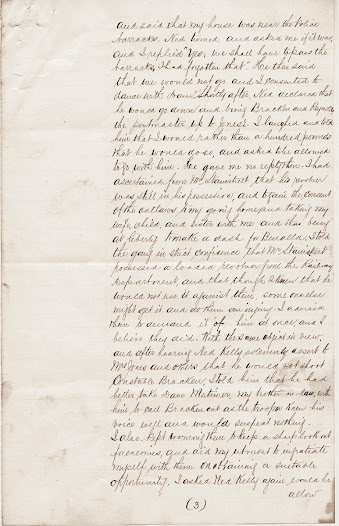 and said that my house was near the Police
barracks. Ned turned and asked me if it was,
and I replied "Yes, we shall have to pass the
barracks, I had forgotten that." He then said
that we would not go and I consented to
dance with Shortly after, Ned declared that
he would go down and bring Bracken and
the postmaster up to Jones's. I laughed and told
him that I would rather than a hundred pounds
that he would do so and asked to be allowed
to go with him. He gave me no reply then. I had
ascertained from Mr Stanistreet that his revolver
was still in his possession, and to gain the consent
of the outlaws to my going home and taking my
wife, child, and sister with me and thus being
at liberty to make a dash for Benalla, I told
the gang in strict confidence that Mr Stanistreet
possessed a loaded revolver from the Railway
department, and that though I knew that he
would not use it against them, some one else
might get it and do them an injury. I advised
them to demand it of him at once, and I
believe they did. With the same object in view,
and after hearing Ned Kelly solemnly assert to
Mrs Jones and others that he would not shoot
Constable Bracken, I told him that he had
better take Dave Mortimer, my brother in law, with
him to call Bracken out as the trooper knew his
voice well and would suspect nothing.
I also kept warning them to keep a sharp look out
for enemies, and did my utmost to ingratiate
myself with them. On obtaining a suitable
opportunity, I asked Ned Kelly again, would he
allow
(3)